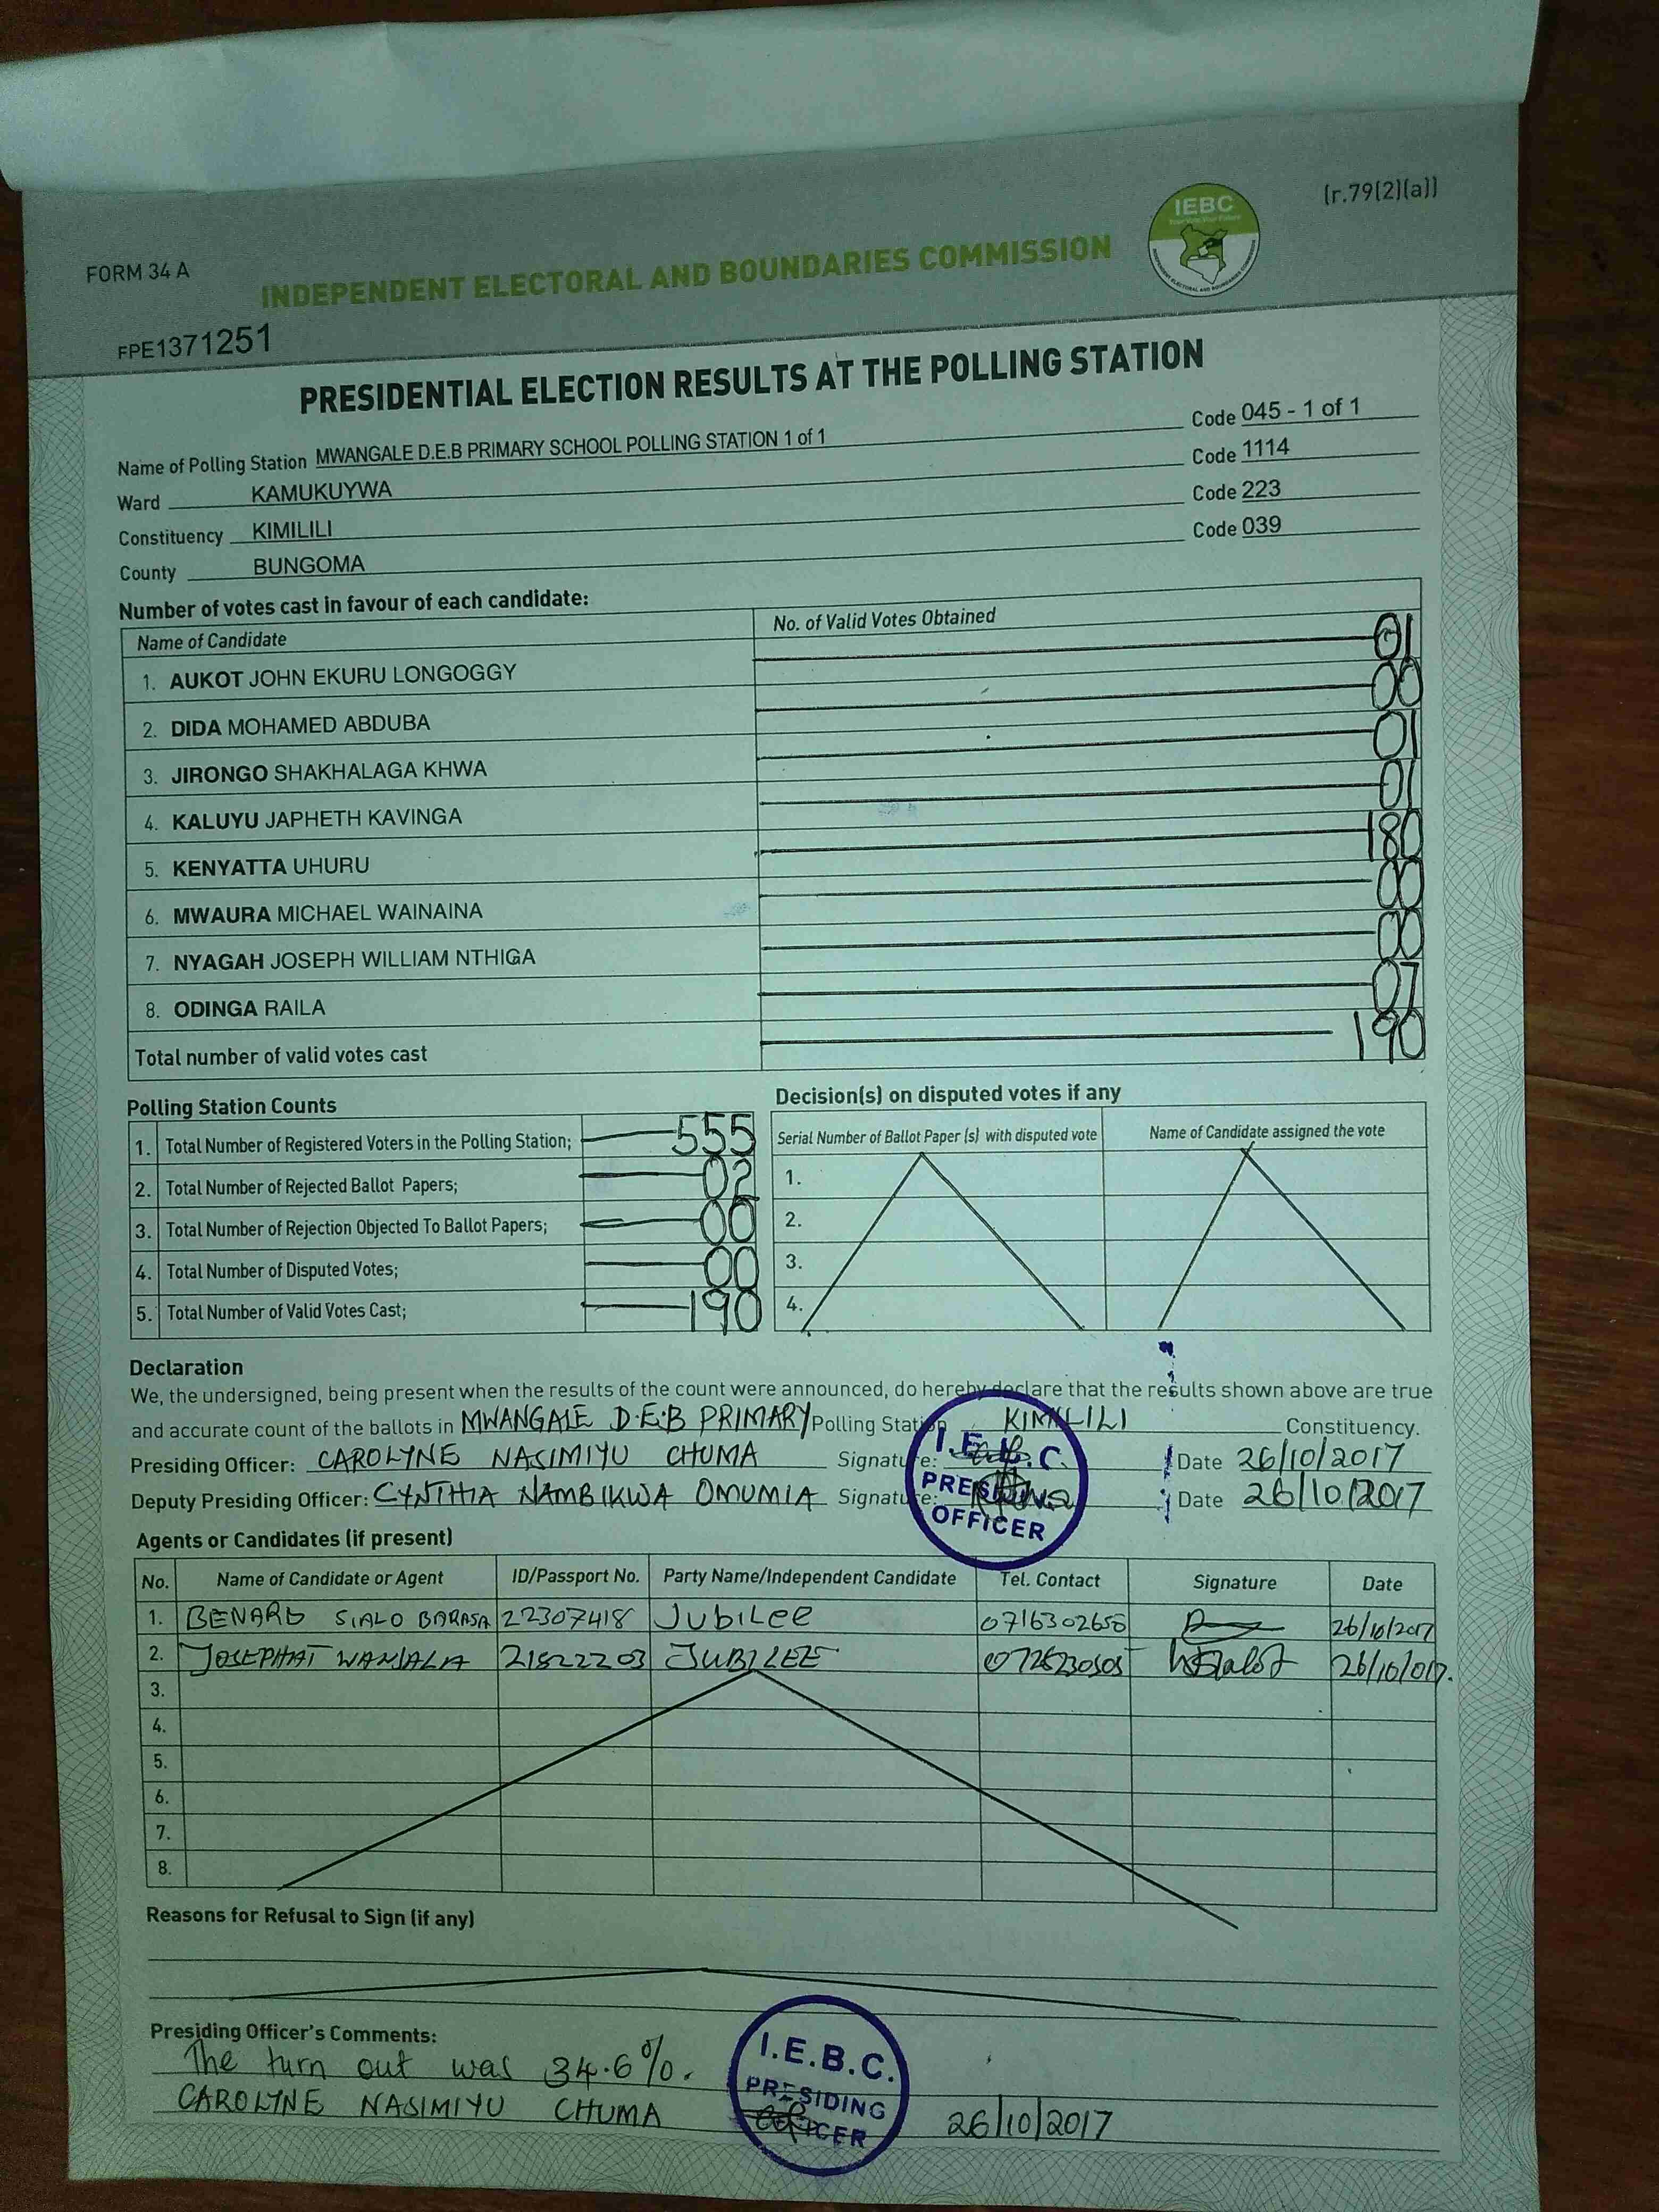 (r.79(2)(a))
IEBC
FORM 34 A
INDEPENDENT ELECTORAL AND BOUNDARIES COMMISSION
FPE1371251
PRESIDENTIAL ELECTION RESULTS AT THE POLLING STATION
Name of Polling Station MWANGALE D.E.B PRIMARY SCHOOL POLLING STATION 1 of 1 Code 045 - 1 of 1
Ward KAMUKUYWA Code 1114
Constituency KIMILILI Code 223
County BUNGOMA Code 039
Number of votes cast in favour of each candidate:
Name of Candidate No. of Valid Votes Obtained
1. AUKOT JOHN EKURU LONGOGGY 01
2. DIDA MOHAMED ABDUBA 00
3. JIRONGO SHAKHALAGA KHWA 01
4. KALUYU JAPHETH KAVINGA 01
5. KENYATTA UHURU 180
6. MWAURA MICHAEL WAINAINA 00
7. NYAGAH JOSEPH WILLIAM NTHIGA 00
8. ODINGA RAILA 07
Total number of valid votes cast 190
Polling Station Counts
1. Total Number of Registered Voters in the Polling Station; 555
2. Total Number of Rejected Ballot Papers; 02
3. Total Number of Rejection Objected To Ballot Papers; 00
4. Total Number of Disputed Votes; 00
5. Total Number of Valid Votes Cast; 190
Decision(s) on disputed votes if any
Serial Number of Ballot Paper (s) with disputed vote Name of Candidate assigned the vote
1.
2.
3.
4.
Declaration
We, the undersigned, being present when the results of the count were announced, do hereby declare that the results shown above are true
and accurate count of the ballots in MWANGALE D.E.B PRIMARY Polling Station KIMILILI Constituency.
Presiding Officer: CAROLYNE NASIMIYU CHUMA Signature: Date 26/10/2017
Deputy Presiding Officer: CYNTHIA NAMBIKWA OMUMIA Signature: Date 26/10/2017
I.E.B.C.
PRESIDING
OFFICER
Agents or Candidates (if present)
No. Name of Candidate or Agent ID/Passport No. Party Name/Independent Candidate Tel. Contact Signature Date
1. BENARD SIALO BARASA 22307418 JubiLee 0716302658 26/10/2017
2. JOSEPHAT WANJALA 21822203 JUBILEE 26/10/017.
3.
4.
5.
6.
7.
8.
Reasons for Refusal to Sign (if any)
Presiding Officer's Comments:
The turn out was 34.6%.
CAROLYNE NASIMIYU CHUMA 26/10/2017
I.E.B.C.
PRESIDING
OFFICER